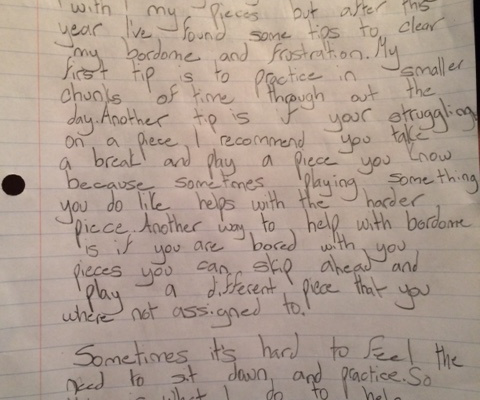 with my pieces but after this
year I've found some tips to clear
my bordome and frustration. My
first tip is to practice in smaller
chunks of time through out the
day. Another tip is if your struggling
on a piece I recommend you take
a break and play a piece you know
because sometimes playing something
you do like helps with the harder
piece. Another way to help with bordome
is if you are bored with you
pieces you can skip ahead and
play a different piece that you
where not assigned to.
Sometimes it's hard to feel the
need to sit down and practice. So
is what I do to help